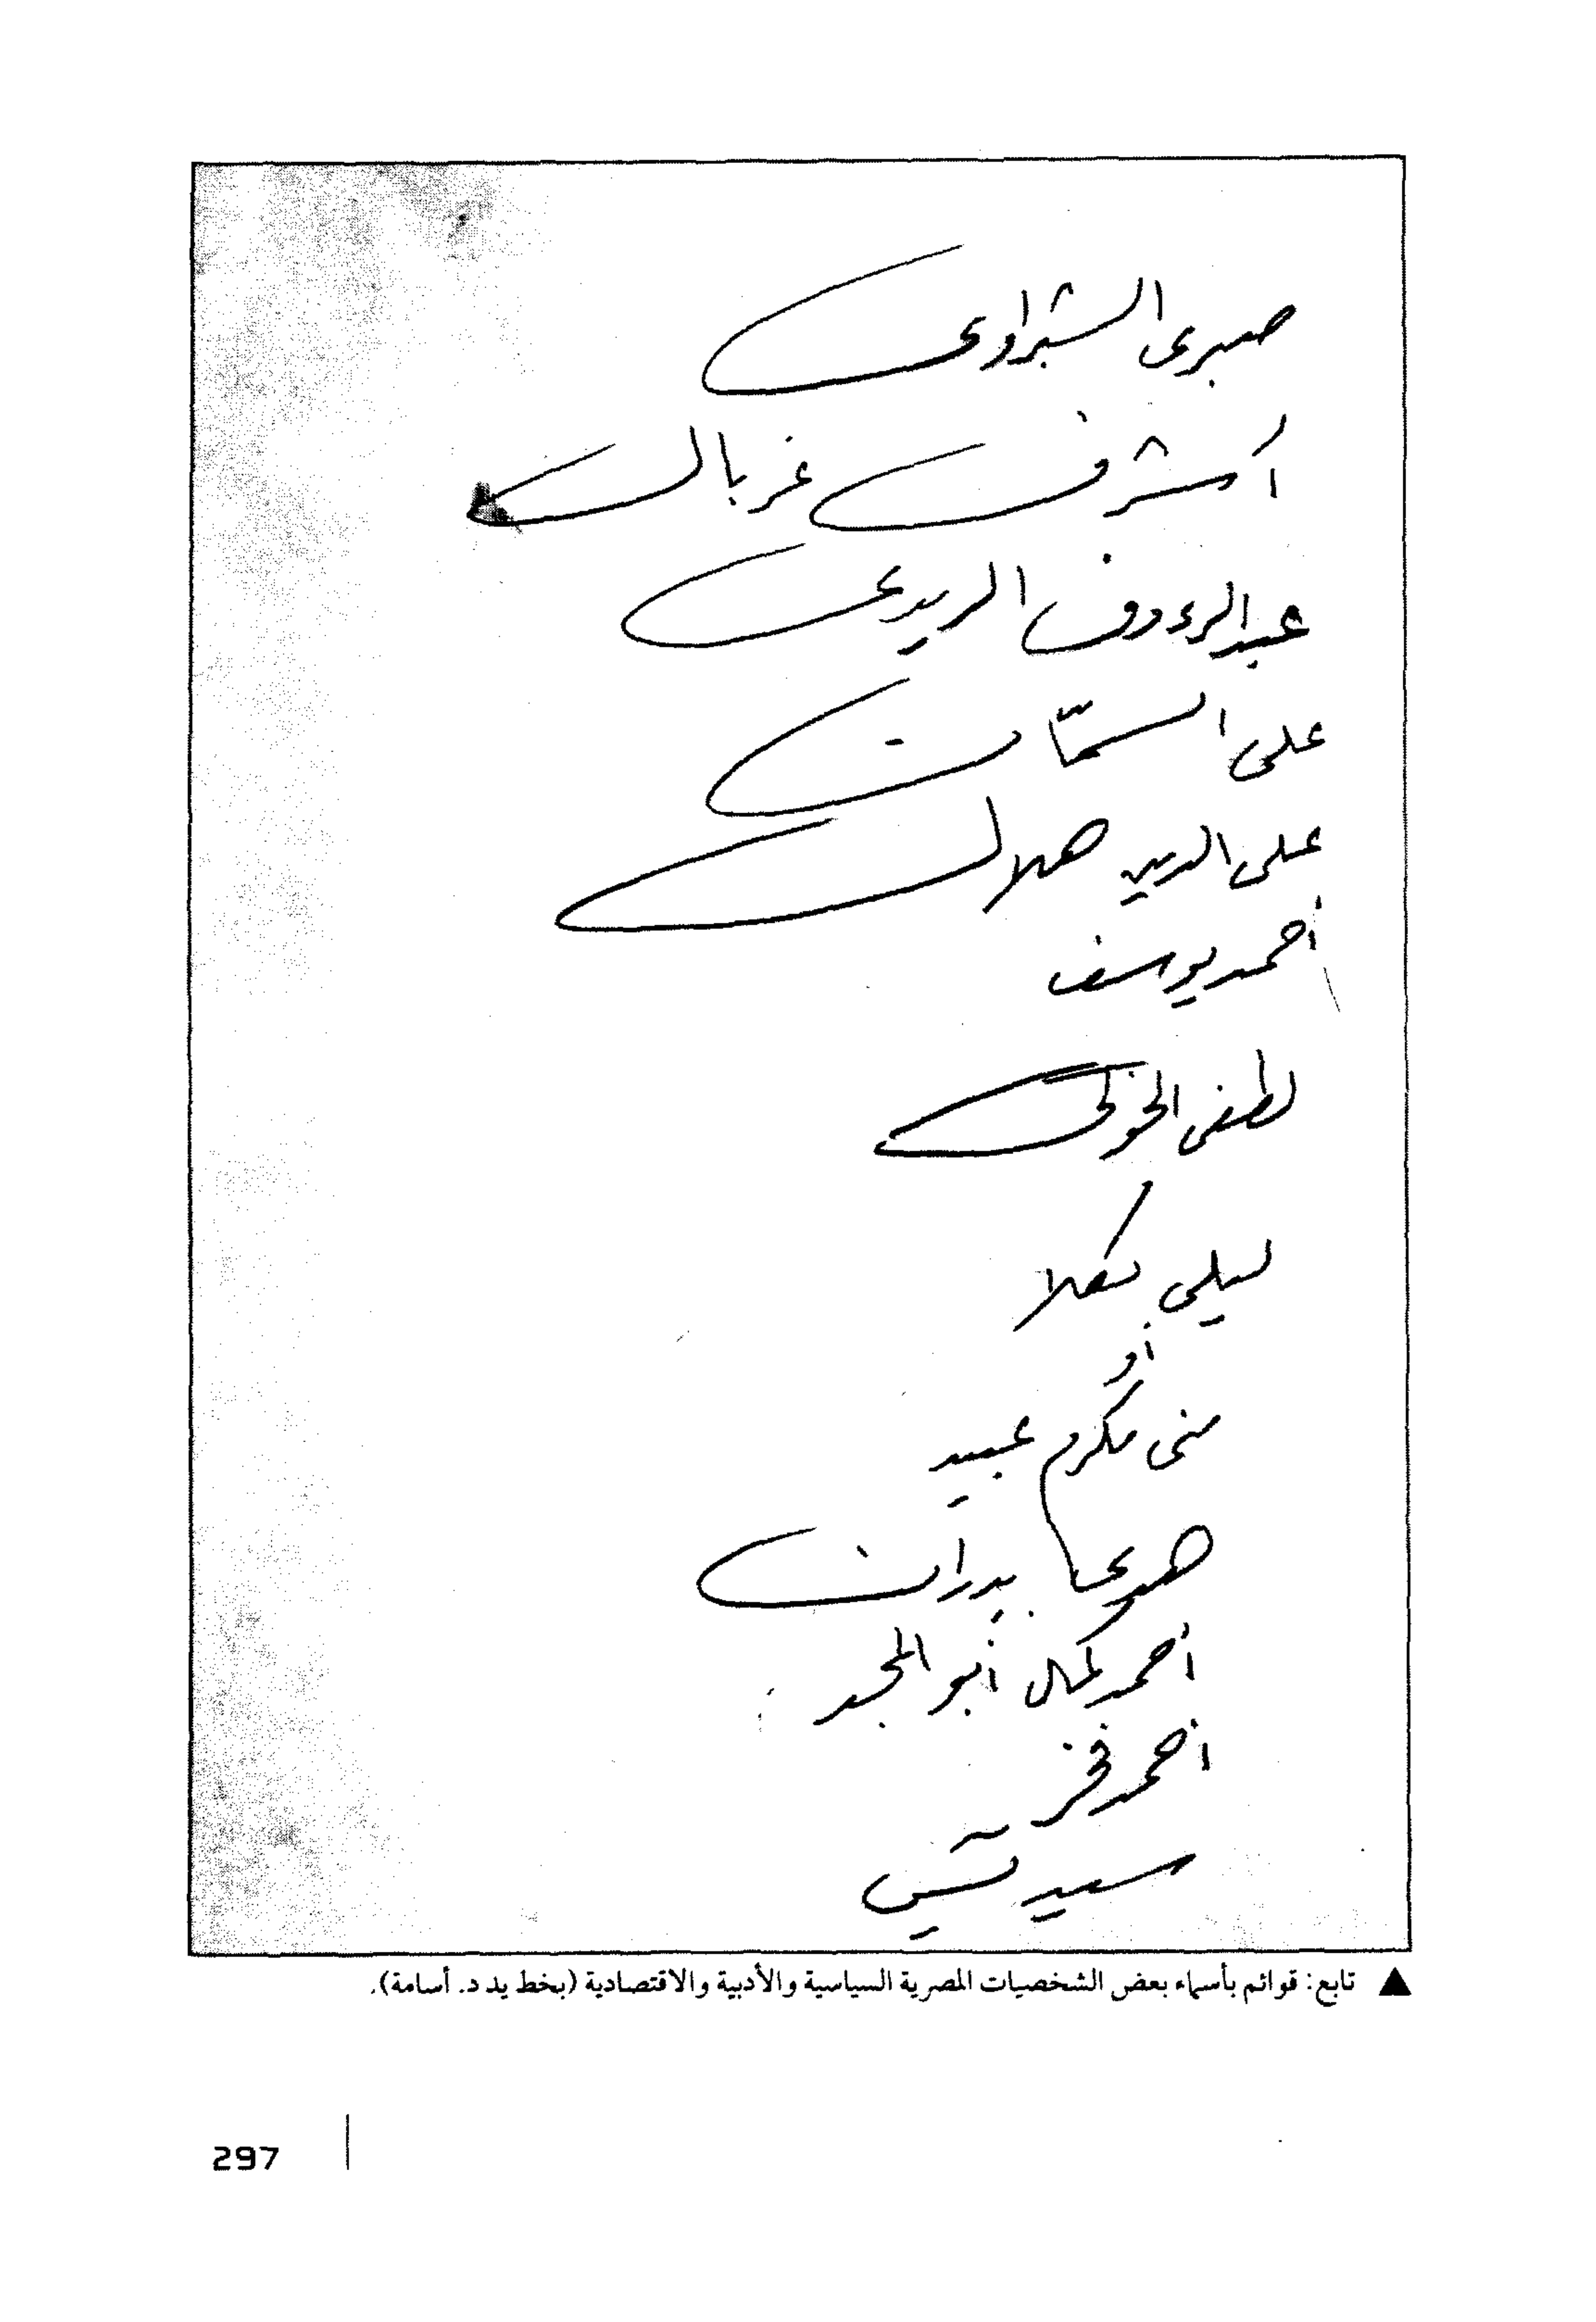 صبرى الشبراوى
أشرف غربال
عبد الرءوف الريدى
على السمّان
على الدين هلال
أحمد يوسف
لطفى الخولى
ليلى تكلا
أو
منى مكرم عبيد
هدى بدران
أحمد كمال أبو المجد
أحمد فخر
سيد يس
▲ تابع: قوائم بأسماء بعض الشخصيات المصرية السياسية والأدبية والاقتصادية (بخط يد د. أسامة).
297